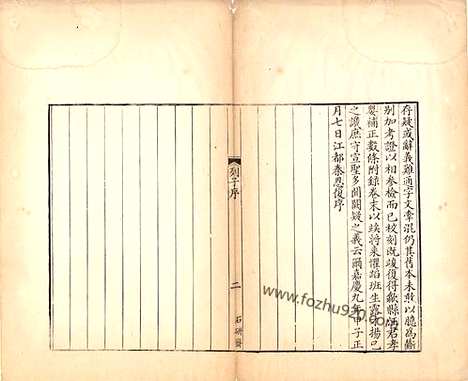 存疑或辭義難通字文舛混仍其舊本未敢以臆為斷
别加考證以相參檢而已校刻既竣復得歙縣汪君孝
嬰補正數條附錄卷末以俟將來懼蹈班生露才揚己
之譏庶守宣聖多聞闕疑之義云爾嘉慶九年甲子正
月七日江都秦恩復序
列子序
二
石研齋
www.fozhu920.com